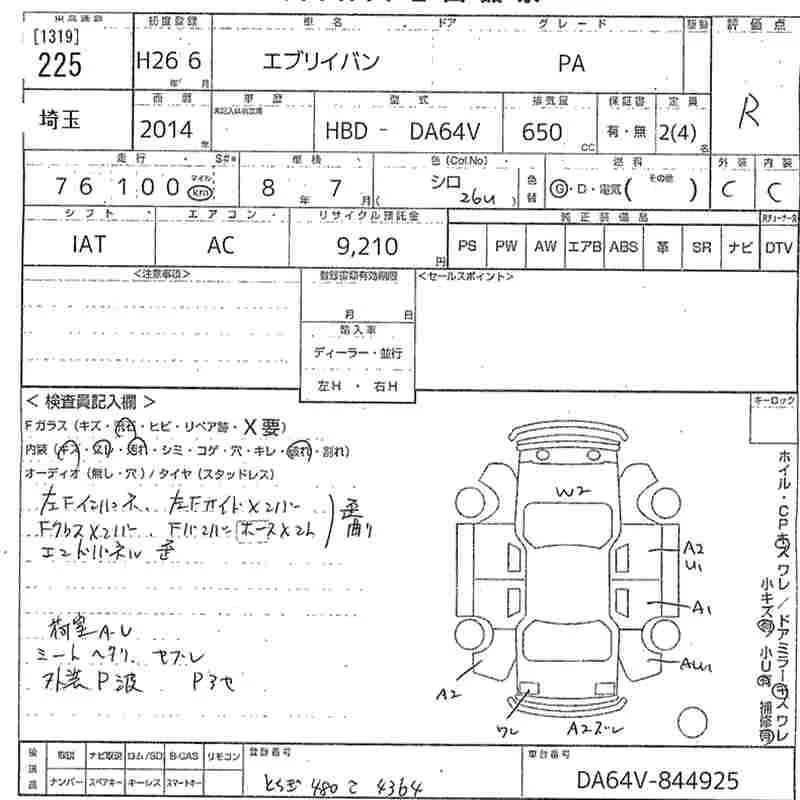 初度登録 車名 ドア グレード 評価点
[1319]
225 H26 6 エブリイバン PA R
年 月
西暦 車歴 型式 排気量 保証書 定員
埼玉 2014年 HBD - DA64V 650cc 有・無 2(4)名
走行 S#* 車検 色(Col.No) 色替 燃料 外装 内装
76 100 マイル km 8年 7月 シロ 26U G・D・電気( その他 ) C C
シフト エアコン リサイクル預託金 純正装備品
IAT AC 9,210円 PS PW AW エアB ABS 革 SR ナビ DTV
<注意事項> 登録書類有効期限 <セールスポイント>
月 日
輸入車
ディーラー・並行
左H ・ 右H
<検査員記入欄> キーロック
Fガラス(キズ・飛石・ヒビ・リペア跡・X要)
内装(キズ・汚レ・・シミ・コゲ・穴・キレ・破れ・割れ)
オーディオ(無し・穴)/タイヤ(スタッドレス)
左Fインパネ、左Fガイド×2バー
Fクロス×2バー Fバンパーホース×2ム 歪 曲り
エンドパネル 歪
荷室A-U
ミート ヘタリ、ヤブレ
外装P波 Pヨセ
W2
A2
U1
A1
AU1
A2
ワレ
A2ズレ
ホイル・CPキズワレ/ドアミラーキズワレ
小キズ有 小U有 補修有
後送品 取説 ナビ取説 ロム/SD B-CAS リモコン 登録番号 車台番号
ナンバー スペアキー キーレス スマートキー 480 4364 DA64V-844925